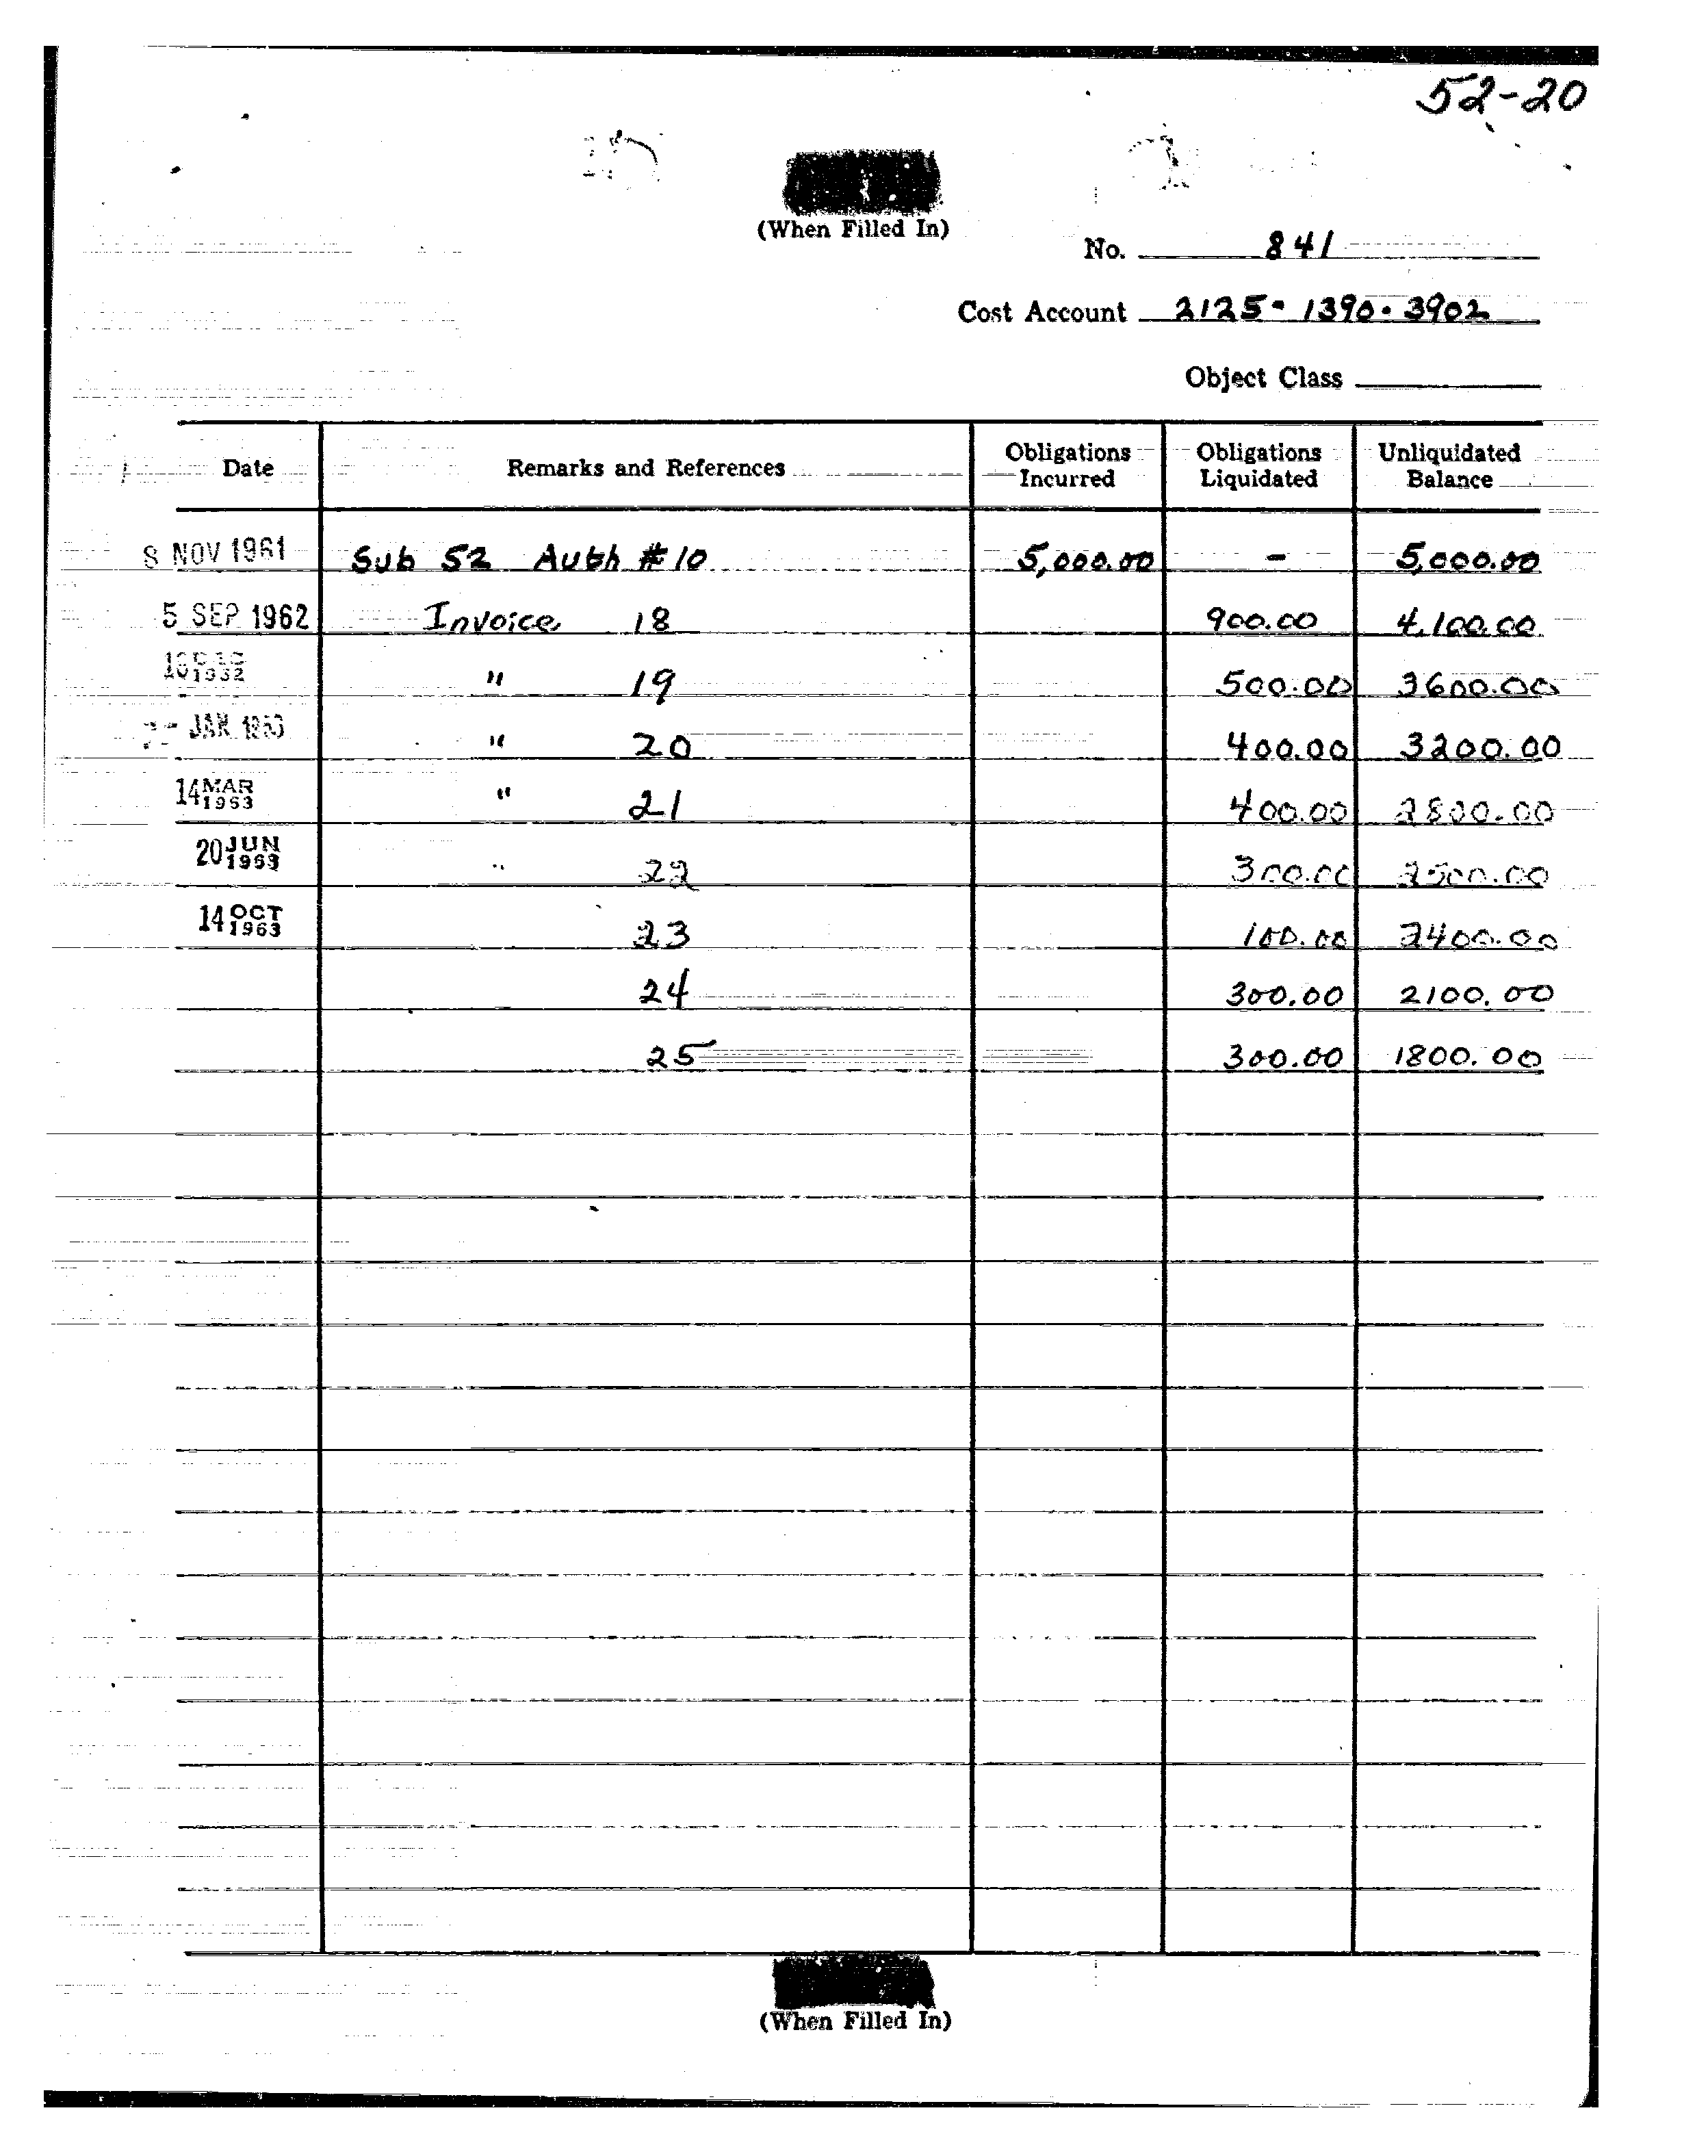 52-20
(When Filled In)
No. 841
Cost Account 2125-1390-3902
Object Class
Date Remarks and References Obligations Incurred Obligations Liquidated Unliquidated Balance
8 NOV 1961 Sub 52 Auth #10 5,000.00 - 5,000.00
5 SEP 1962 Invoice 18 900.00 4,100.00
" 19 500.00 3600.00
JAN 1963 " 20 400.00 3200.00
14 MAR 1963 " 21 400.00 2800.00
20 JUN 1963 " 22 300.00 2500.00
14 OCT 1963 23 100.00 2400.00
24 300.00 2100.00
25 300.00 1800.00
(When Filled In)